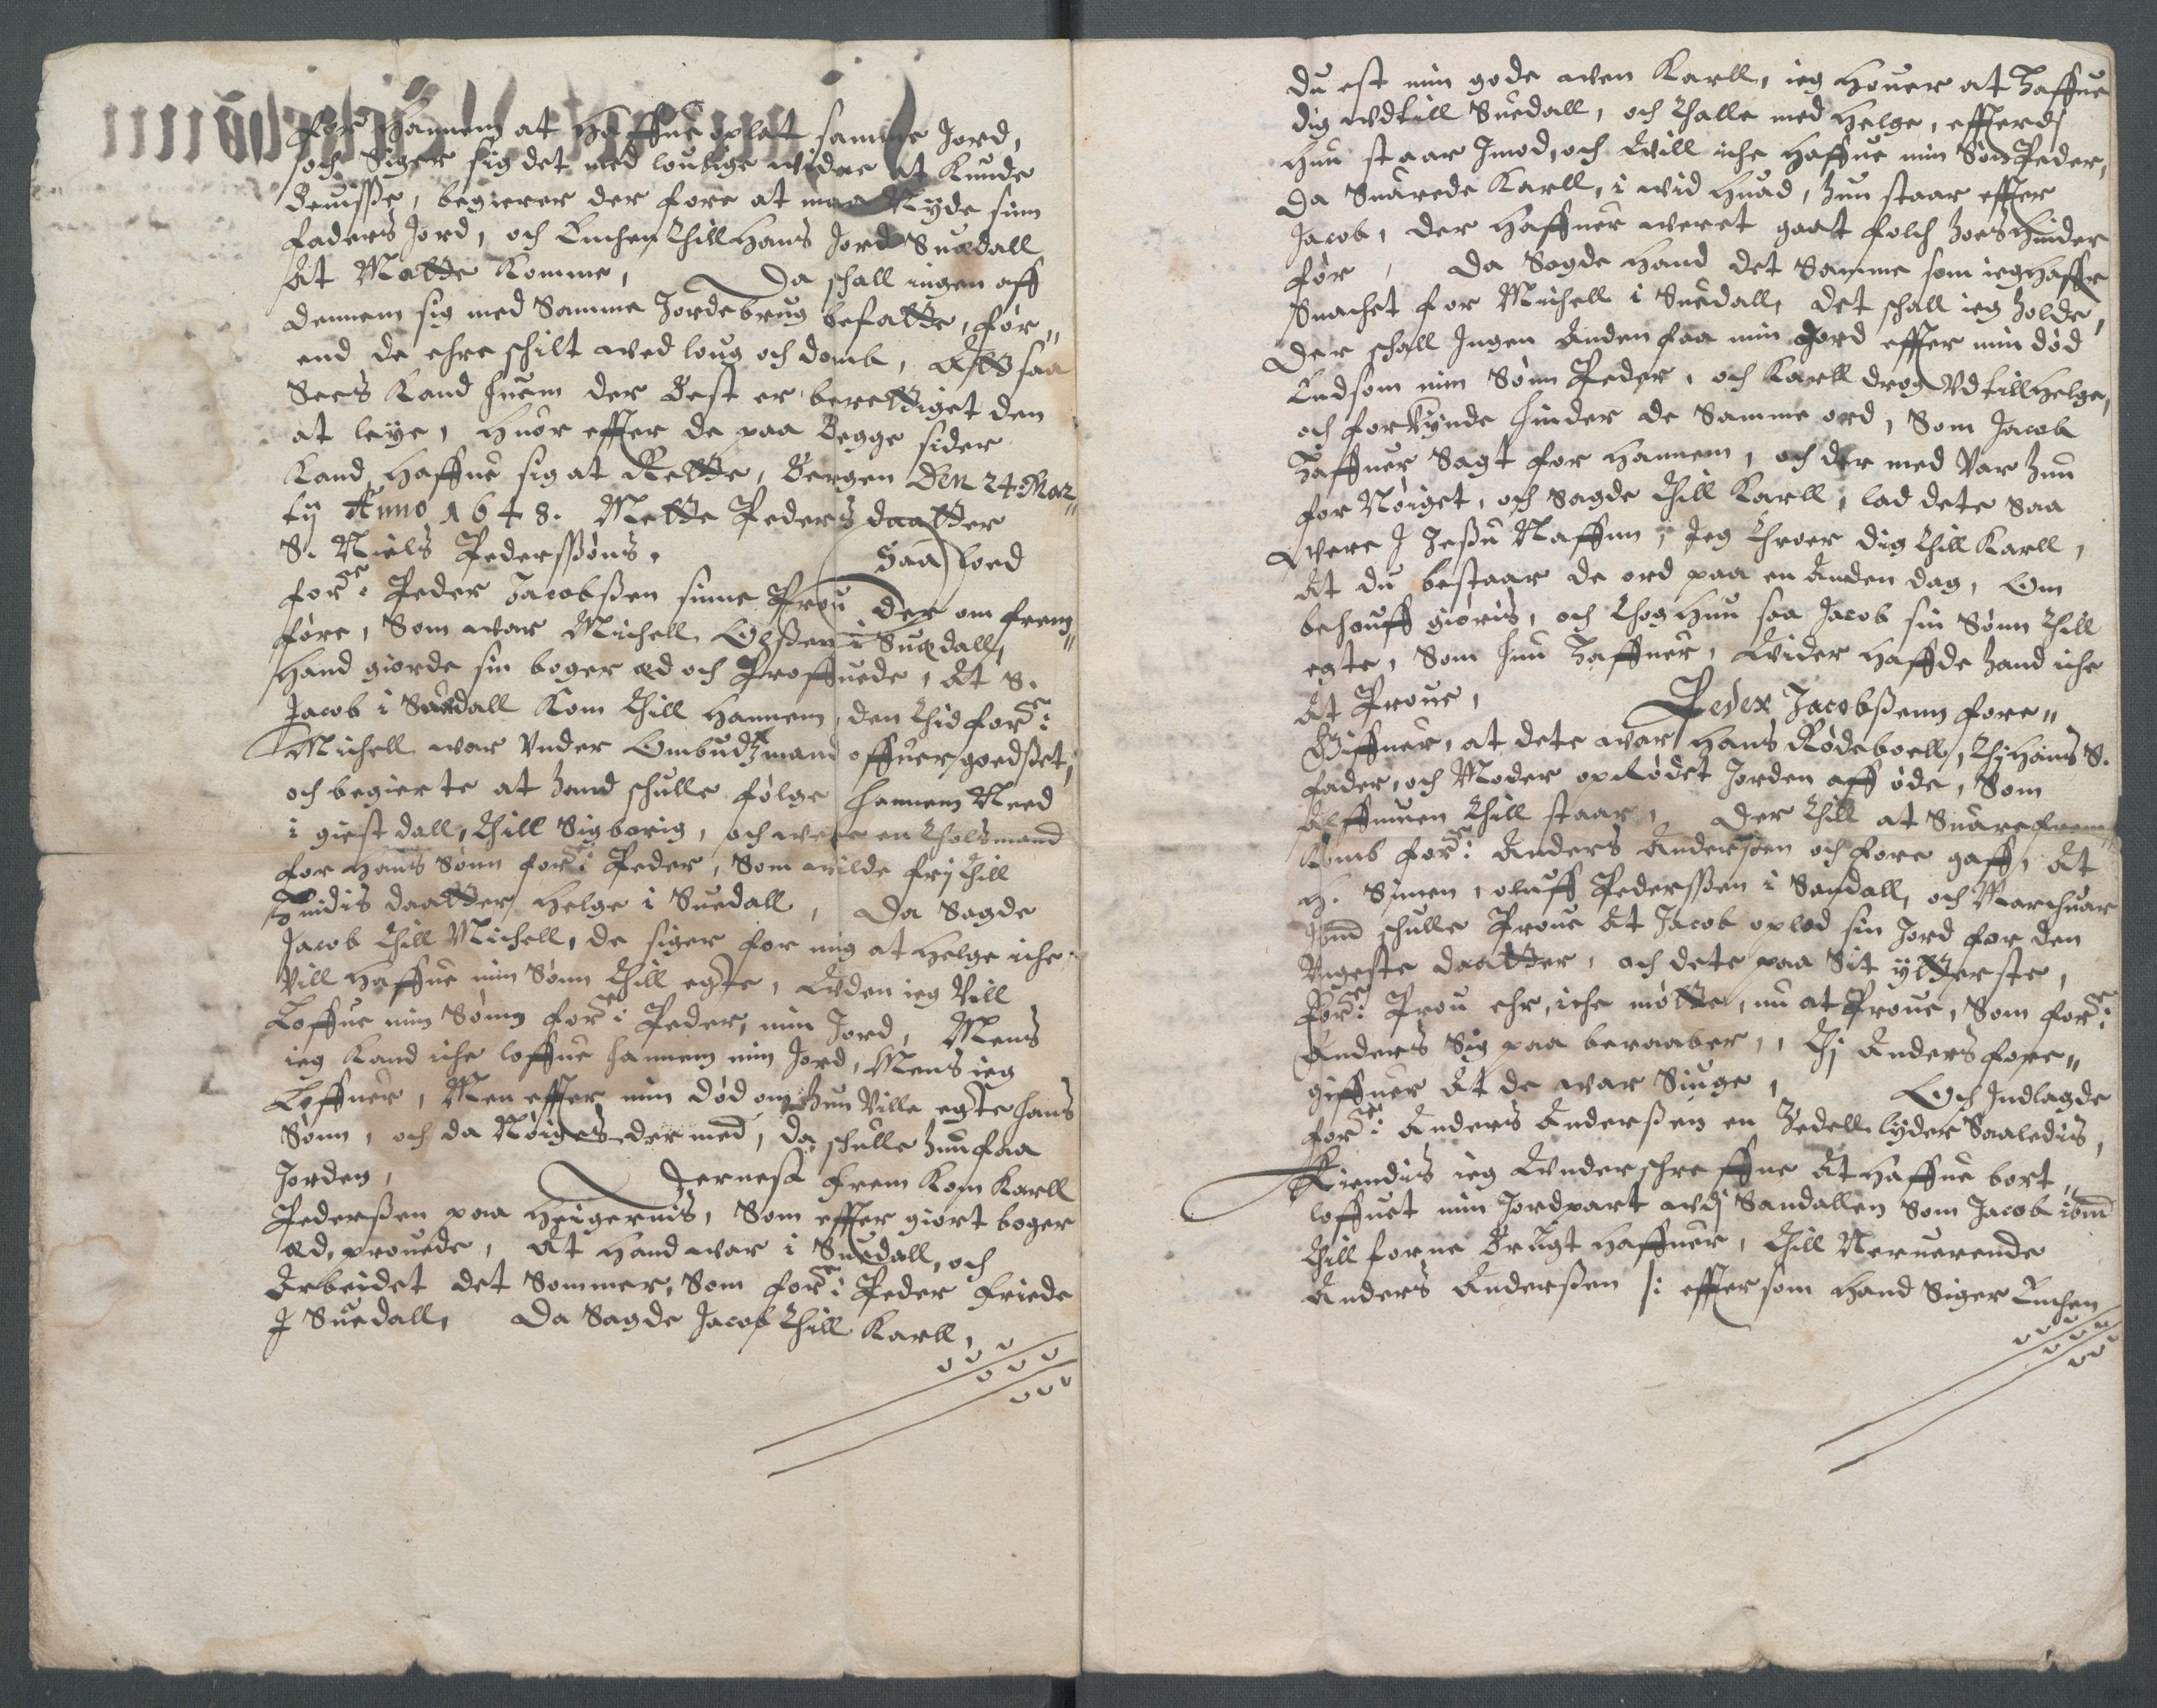 for Hannem at Haffue oplat samme Jord,
och Siger sig det med loulige widne at Kunde
Beuisse, begierer der fore at maa Nyde sinn
faders Jord, och Enchen Thill Hans Jord Suædall
At Motte Komme, Da schall ingen aff
dennem sig med Samme Jordebrug befatte, før„
end de ehre schilt wed loug och domb, Att saa
Sees Kand huem der Best er berettiget den
at leye, Huor effter de paa Begge sider
Kand Haffue sig at Rette, Bergen Den 24 Mar„
tij Anno 1648. Mette Peders daatter
S. Niels Pederssøns.
Saa loed
forne: Peder Jacobßen sinne Prou der om frem„
føre, Som war Michell Olßen i Suædall,
Hand giorde sin boger æd och Proffuede, At S.
Jacob i Suædall Kom Thill Hannem, den Thid forne:
Michell war Vnder Ombudzmand offuer goedßet,
och begierte at Hand schulle følge hannem Need
i giestdall, Thill Sigborig, och were en Tholsmand
for Hans Sønn forne: Peder, Som wilde frj Thill
Hindis daatter Helge i Suedall, Da Sagde
Jacob Thill Michell, de siger for mig at Helge iche
Vill Haffue min Sønn Thill egte, Vden ieg Vill
Loffue min Sønn forne: Peder, min Jord, Mens
ieg Kand iche loffue hannem min Jord, Mens ieg
Leffuer, Men effter min død om Hun Ville egte hans
Sønn, och da Nøiges der med, da schulle Hun faa
Jorden, Dernest Frem Kom Karll
Pederßen paa Heigernis, Som effter giort boger
æd, prouede, At Hand war i Suedall, och
Arbeidet det Sommer, Som forne: Peder Friede
J Suedall, Da Sagde Jacob Thill Karll,
du est min gode wen Karll, ieg Houer at Haffue
dig vdtill Suedall, och Thalle med Helge, effterdj
Hun staar Jmod, och Will iche Haffue min Søn Peder,
Da Suarede Karll, i wid Huad, Hun staar effter
Jacob, der Haffuer weret gaat folch Hoes Hinder
før, Da Sagde Hand det Samme som ieg Haffr
Snachet for Michell i Suedall, det schall ieg Holde,
Der schall Jngen Anden faa min Jord effter min død
End som min Sønn Peder, och Karll drog Vd till Helge,
och forkynde Hinder de Samme ord, Som Jacob
Haffuer Sagt for Hannem, och der med Var Hun
for Nøiget, och Sagde Thill Karll, lad dete Saa
were J Jesu Naffnn, Jeg Throer dig Thill Karll,
At du bestaar de ord paa en Anden dag, Om
behouff giøris, och Thog Hun saa Jacob sin Sønn Thill
egte, Som Hun Haffuer, Wider Haffde Hand iche
At Proue, Peder Jacobßenn fore„
Giffuer, at dete war Hans Rødeboell, Thj Hans S.
fader, och Moder oprødet Jorden aff øde, Som
Alffmuen Thill staar, Der Thill at Suare frem„
Komb forne: Anders Anderßen och fore gaff, At
H. Simen, oluff Pederssen i Sandall, och Marchuar
Jbm̄ schulle Proue At Jacob oplod sin Jord for den
Yngeste daatter, och dete paa Sit ytterste,
Forne: Prou ehr, iche møtte, nu at Proue, Som forne:
Anders Sig paa beraaber, Thj Anders fore„
giffuer At de war Siuge, Och Indlagde
forne: Anders Anderßen en Zedell lyder Saaledis,
Kiendis ieg Vnderschreffne At Haffue bort„
loffuet min Jordpart vdj Sandallen Som Jacob ibm̄
Thill forne Brugt Haffuer, Thill Neruerende
Anders Anderßen /: effter som Hand Siger Enchen